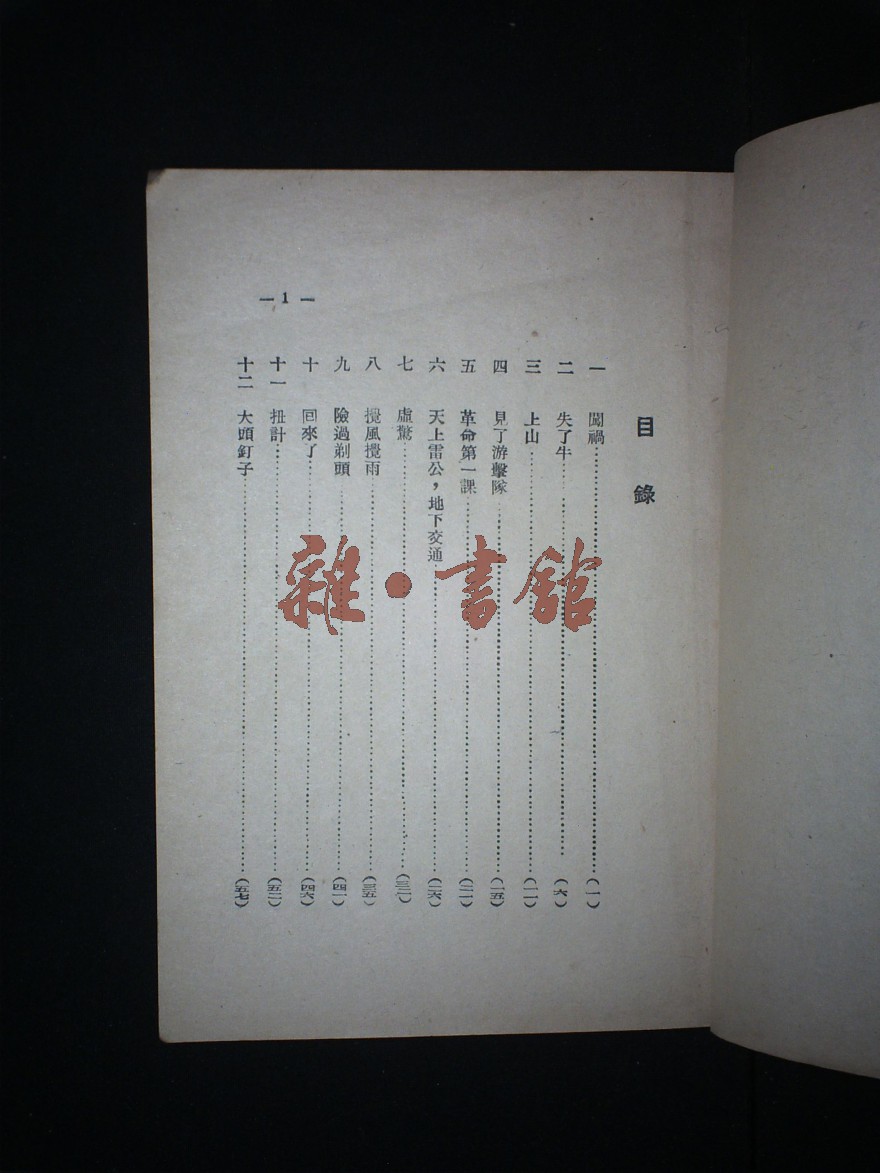 目錄
一 闖禍……(一)
二 失了牛……(六)
三 上山……(一一)
四 見了游擊隊……(一五)
五 革命第一課……(二一)
六 天上雷公，地下交通……(二六)
七 虛驚……(三一)
八 攪風攪雨……(三五)
九 險過剃頭……(四一)
十 回來了……(四六)
十一 扭計……(五二)
十二 大頭釘子……(五七)
— 1 —
雜·書館